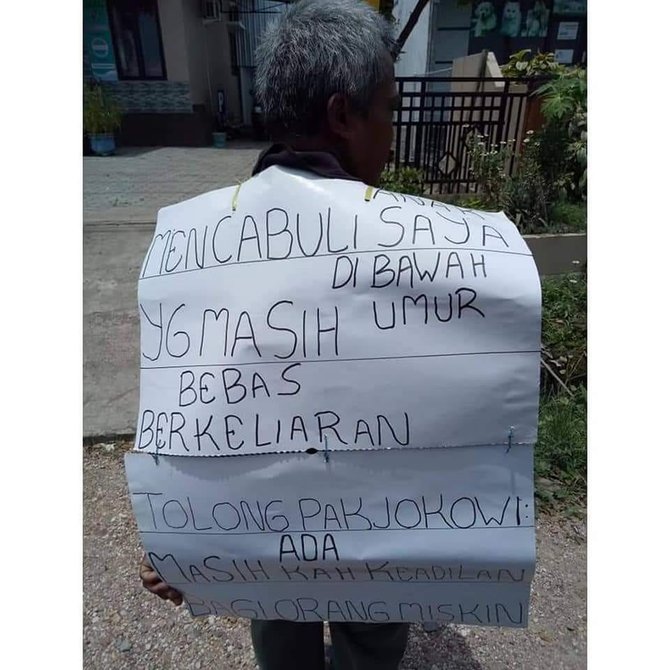 ANAK
MENCABULI SAYA
DI BAWAH
YG MASIH UMUR
BEBAS
BERKELIARAN
TOLONG PAK JOKOWI:
ADA
MASIH KAH KEADILAN
BAGI ORANG MISKIN